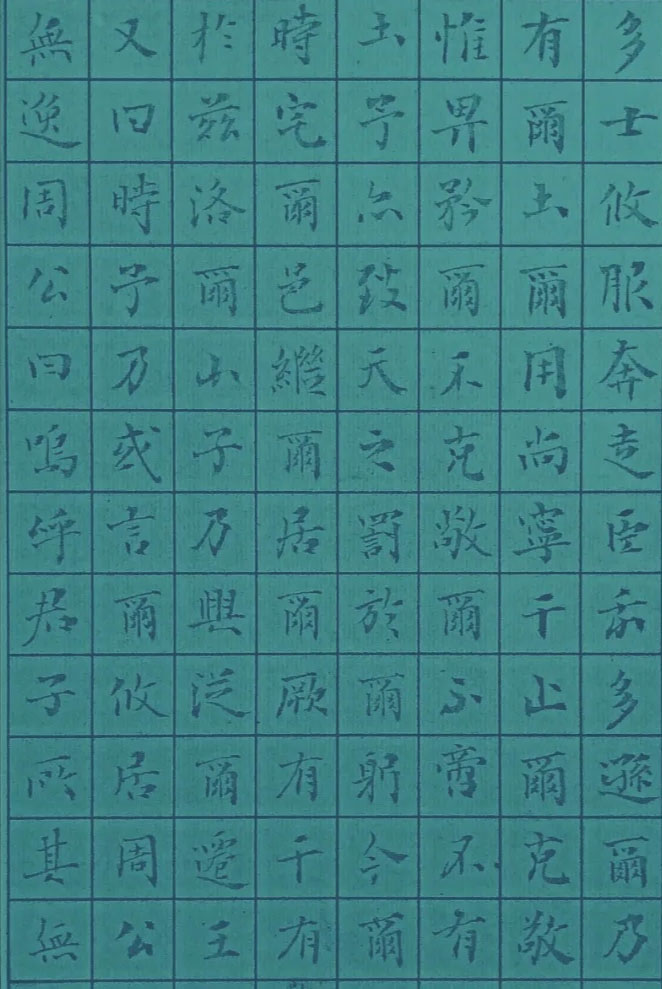 多士攸服奔走臣我多遜爾乃
有爾土爾用尚寧干止爾克敬
惟畀矜爾不克敬爾不啻不有
土予亦致天之罰於爾躬今爾
時宅爾邑繼爾居爾厥有干有
於茲洛爾小子乃興從爾遷王
又曰時予乃或言爾攸居周公
無逸周公曰嗚呼君子所其無